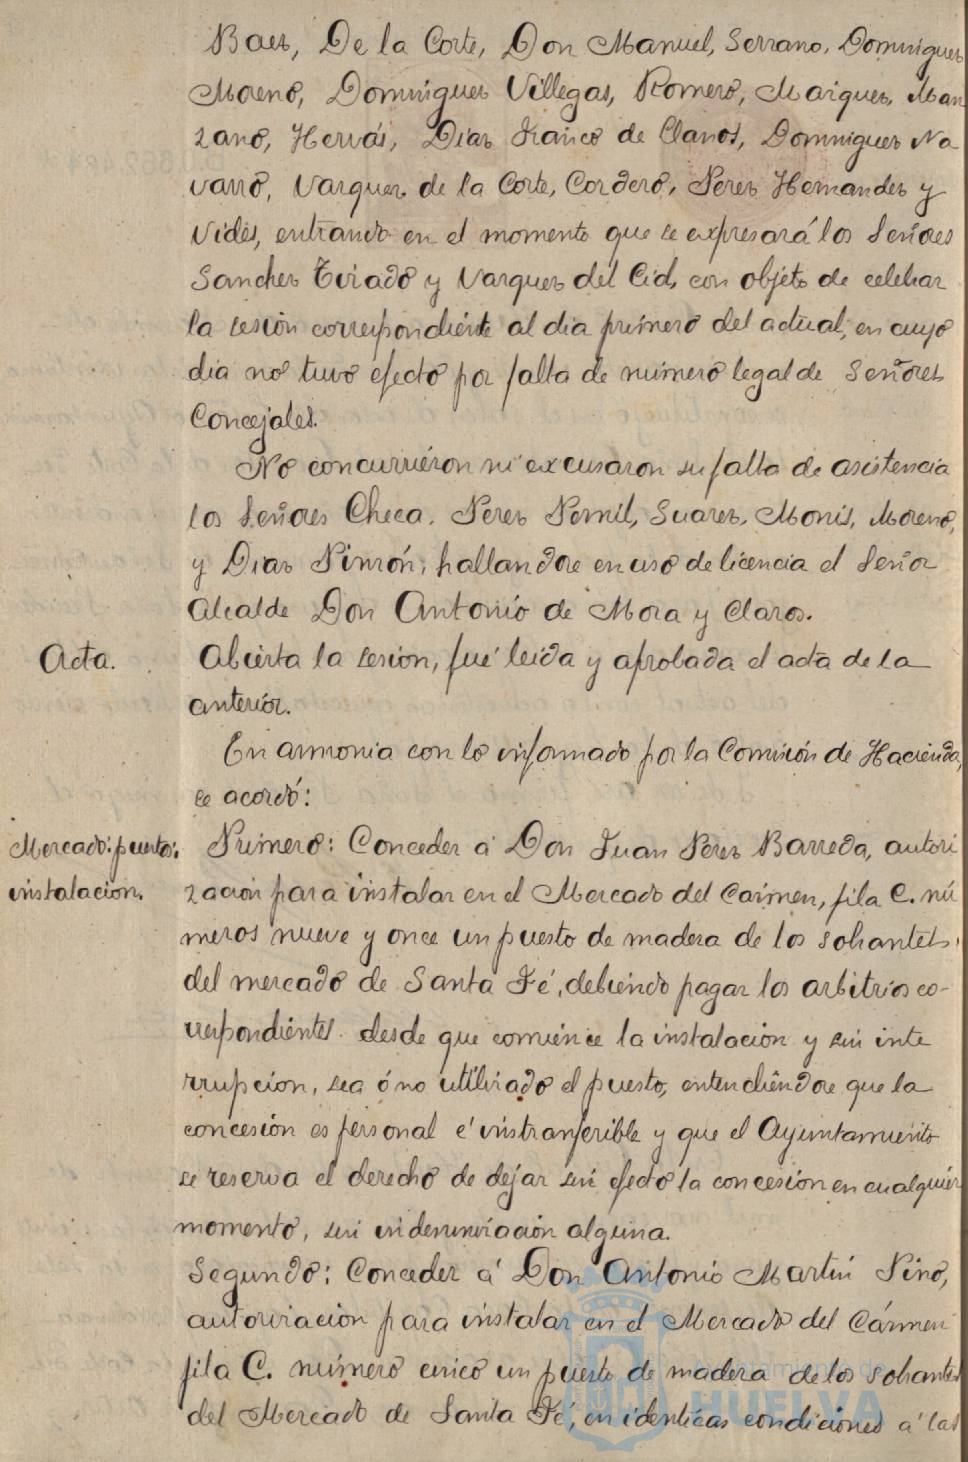 Baez, De la Corte, Don Manuel, Serrano, Dominguez
Moreno, Dominguez Villegas, Romero, Marquez, Man
zano, Hervás, Diaz Franco de Llanos, Dominguez Na
varro, Vazquez de la Corte, Cordero, Perez Hernandez y
Vides, entrando en el momento que se expresará los Señores
Sanchez Tirado y Vazquez del Cid, con objeto de celebrar
la sesion correspondiente al dia primero del actual, en cuyo
dia no tuvo efecto por falta de número legal de Señores
Concejales.
No concurrieron ni excusaron su falta de asistencia
los Señores Checa, Perez Pernil, Suarez, Monis, Moreno,
y Diaz Pinzón, hallandose en uso de licencia el Señor
Alcalde Don Antonio de Mora y Claros.
Acta. Abierta la sesion, fué leida y aprobada el acta de la
anterior.
En armonia con lo informado por la Comision de Hacienda,
se acordó:
Mercado: puestos: Primero: Conceder á Don Juan Perez Barreda, autori
instalacion. zación para instalar en el Mercado del Carmen, fila C. nú
meros nueve y once un puesto de madera de los sobrantes
del mercado de Santa Fé, debiendo pagar los arbitrios co-
rrespondientes desde que comience la instalacion y sin inte
rrupcion, sea ó no utilizado el puesto, entendiéndose que la
concesion es personal é instranferible y que el Ayuntamiento
se reserva el derecho de dejar sin efecto la concesion en cualquier
momento, sin indemnizacion alguna.
Segundo: Conceder á Don Antonio Martin Pino,
autorizacion para instalar en el Mercado del Cármen
fila C. número cinco un puesto de madera de los sobrantes
del Mercado de Santa Fé, en identicas condiciones á las
Ayuntamiento de
HUELVA